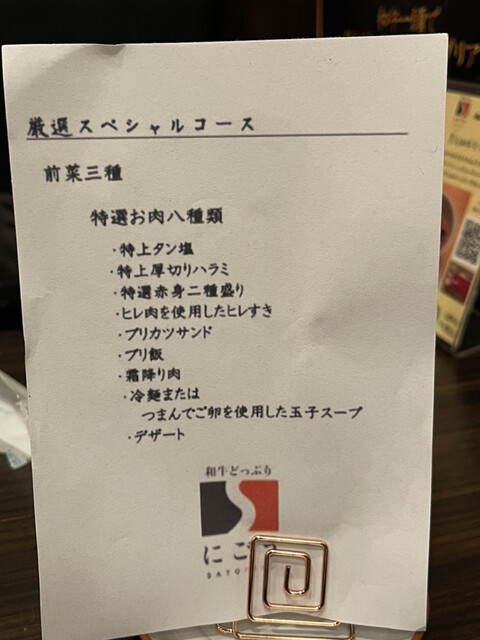 厳選スペシャルコース
前菜三種
特選お肉八種類
・特上タン塩
・特上厚切りハラミ
・特選赤身二種盛り
・ヒレ肉を使用したヒレすき
・ブリカツサンド
・ブリ飯
・霜降り肉
・冷麺または
つまんでご卵を使用した玉子スープ
・デザート
和牛どっぷり
にご